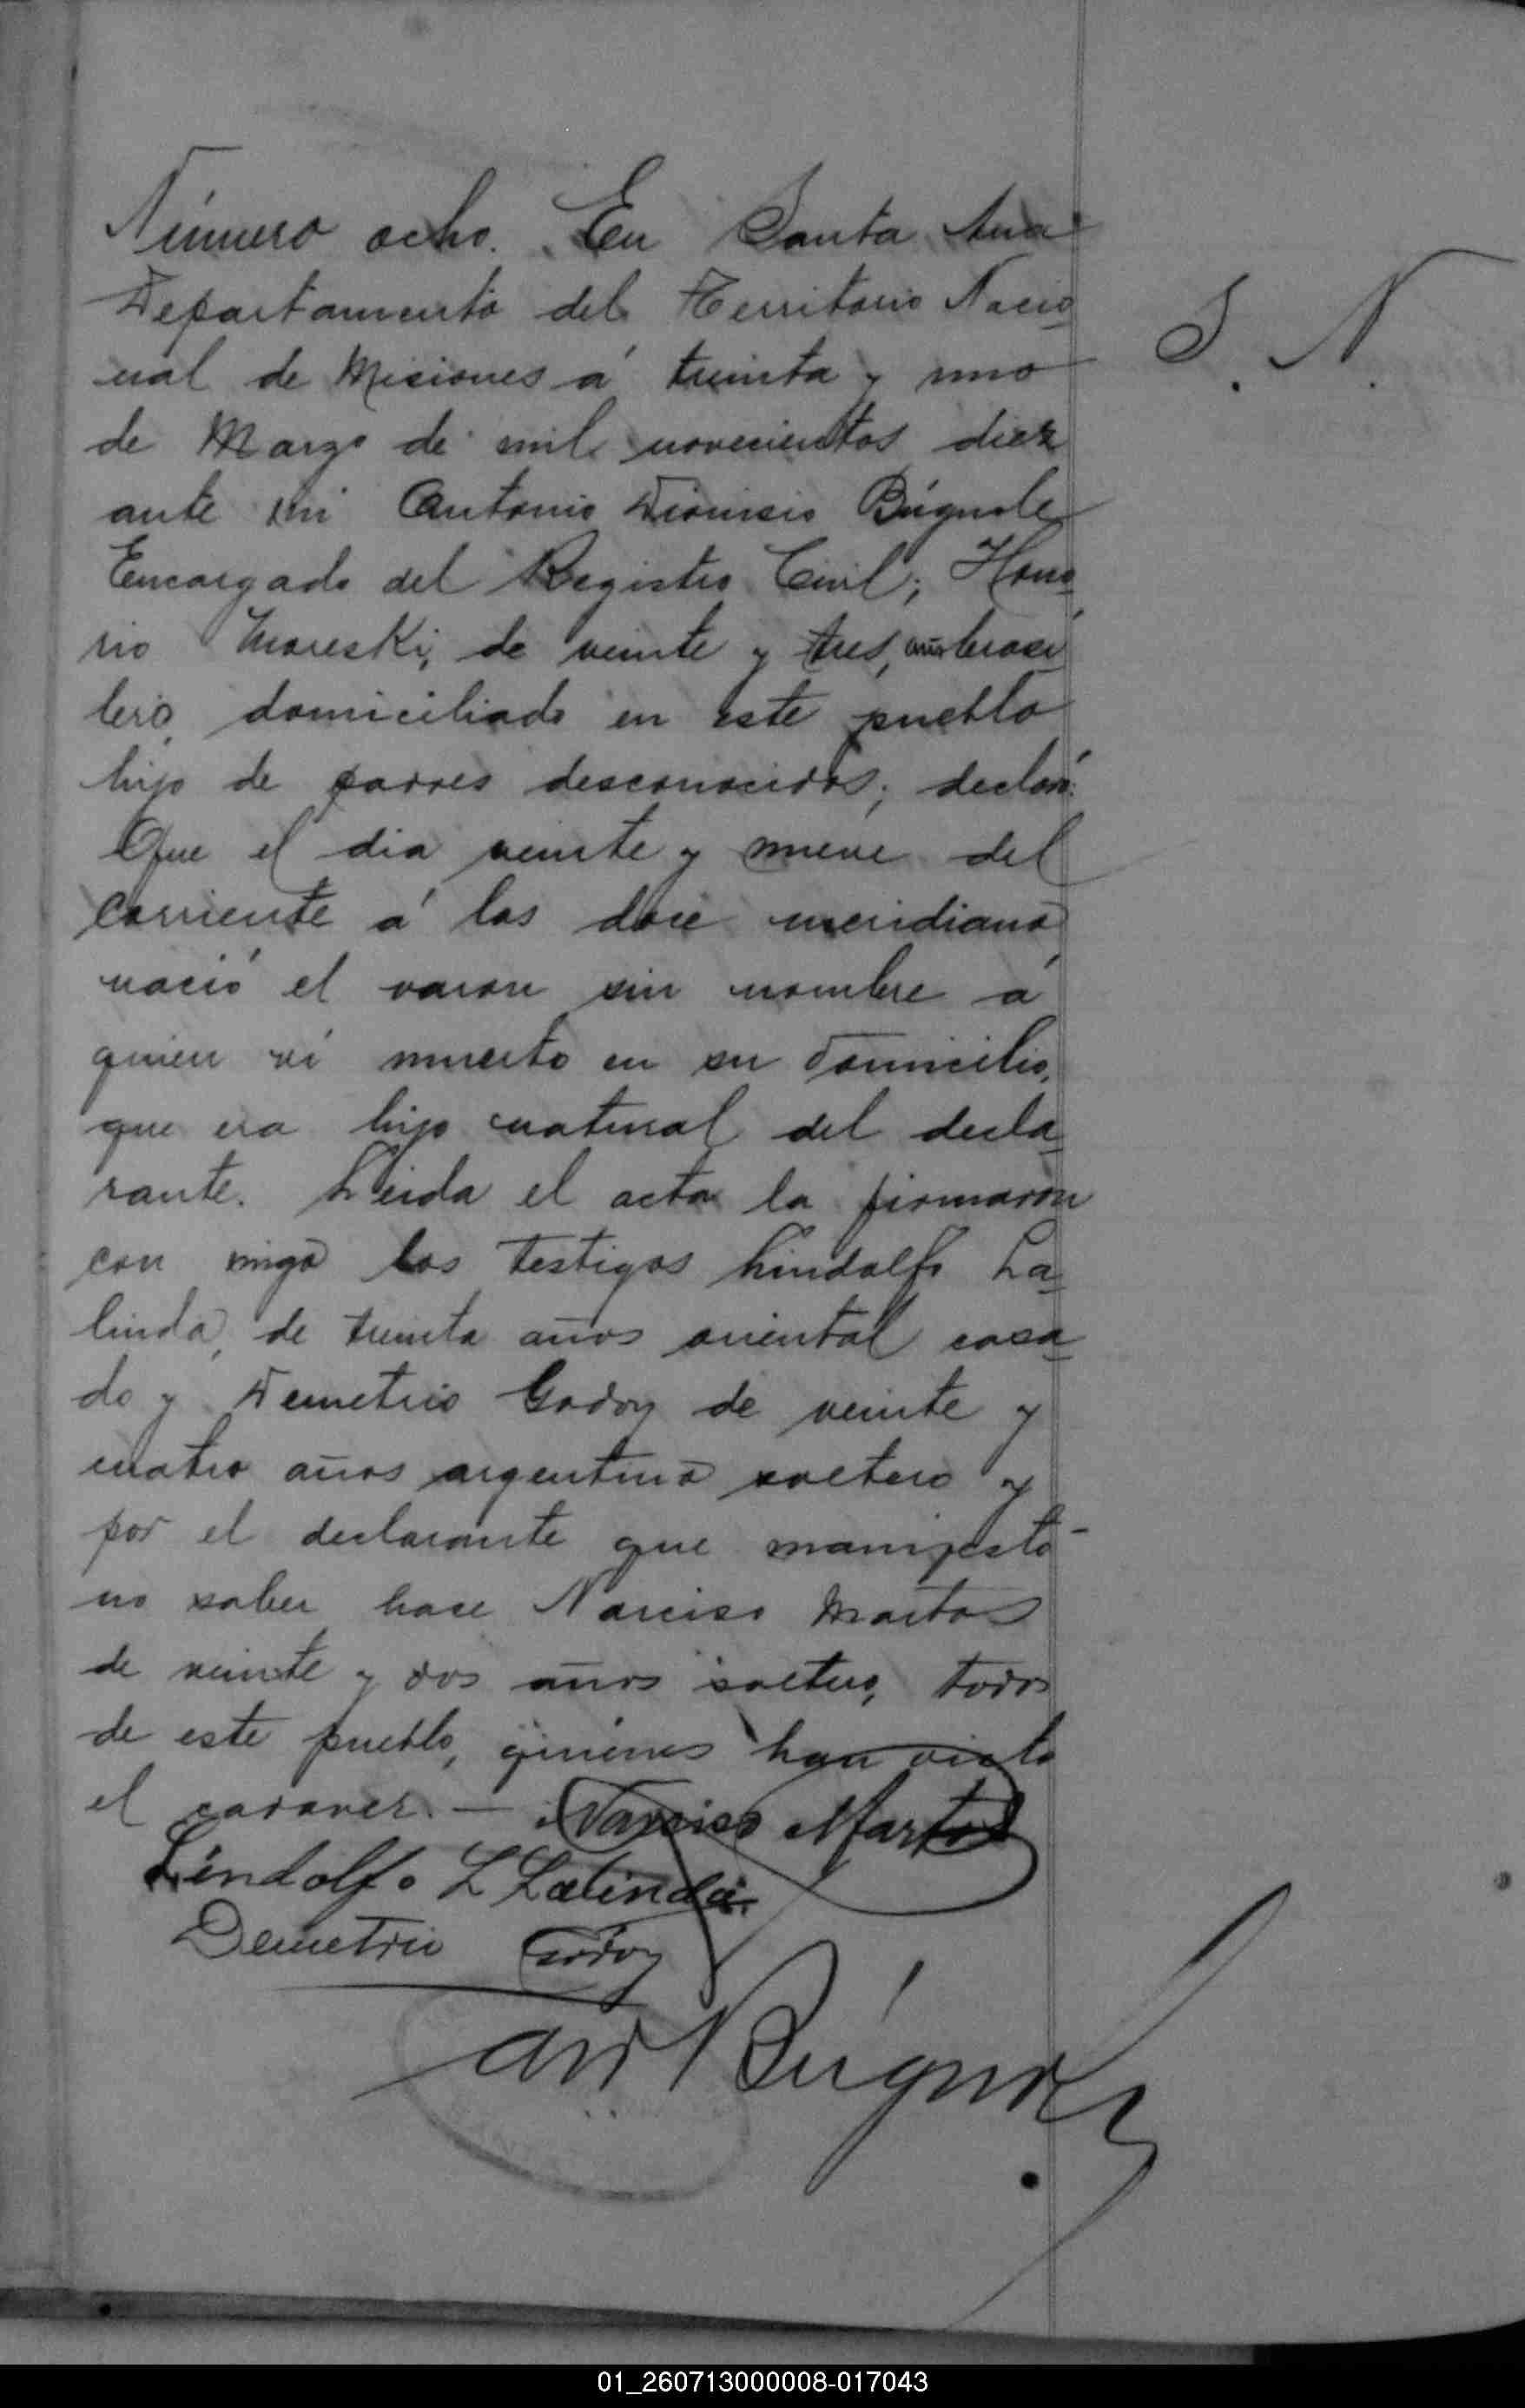 Número ocho. En Santa Ana
S. N.
Departamento del Territorio Nacio
nal de Misiones á treinta y uno
de Marzo de mil novecientos diez
ante mi Antonio Dionisio Búgnole
Encargado del Registro Civil; Hono
rio Moreski, de veinte y tres, años brasi
lero, domiciliado en este pueblo
hijo de padres desconocidos; declaró:
Que el dia veinte y nueve del
corriente á las doce meridiano
nació el varon sin nombre á
quien vi muerto en su domicilio,
que era hijo natural del decla
rante. Leida el acta la firmaron
con migo los testigos Lindolfo La
linda, de treinta años oriental casa
do y Demetrio Godoy de veinte y
cuatro años argentino soltero y
por el declarante que manifestó
no saber hace Narciso Martos
de veinte y dos años soltero, todos
de este pueblo, quienes han visto
el cadaver. — Narciso Martos
Lindolfo L Lalinda
Demetrio Godoy